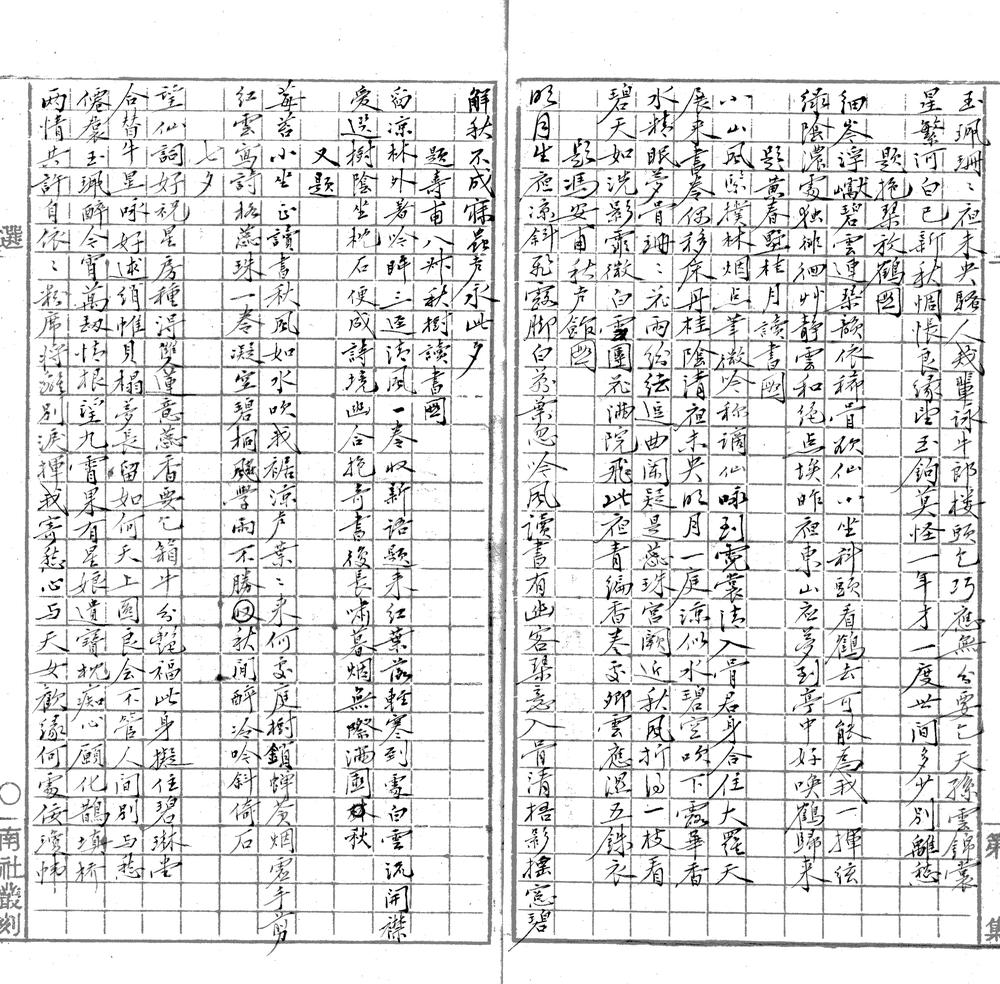 玉珮珊〻夜未央騷人我輩詠牛郎樓頭乞巧應無分要乞天孫雲錦裳
星繁河白已新秋惆悵良緣望玉鉤莫怪一年才一度世間多少別離愁
題抱琴放鶴圖
細岑淳嶽碧雲連琴韻依稀骨欲仙小坐科頭看鶴去可能為我一揮弦
綠陰濃處独徘徊艸靜雲和絕点埃昨夜東山应夢到亭中好喚鶴歸來
題黃春墅桂月讀書圖
小山風緊撲林烟占筆微吟称謫仙咏到霓裳清入骨君身合住大羅天
展來書卷侭移床丹桂陰清夜未央明月一庭涼似水碧空吹下露華香
水精眠夢骨珊〻花雨紛紜逗曲闌疑是蕊珠宮闕近秋風折得一枝看
碧天如洗影霏微白雪團花滿院飛此夜青編香裊處卿雲應溼五銖衣
題馮安甫秋声館圖
明月生夜涼斜飛露脚白荻葉忽吟風讀書有幽客琴意入骨清梧影搖窓碧
解秋不成寐蟲声永此夕
題壽甫八姊秋樹讀書圖
匋涼林外著吟眸三逕清風一卷收新語題來紅葉落輕寒到處白雲流開襟
愛選樹陰坐枕石便成詩境幽合抱奇書後長嘯暮烟無際滿園秋
又題
莓苔小坐正讀書秋風如水吹我裾涼声葉〻來何处庭樹鎖蟬黃烟處手剪
紅雲寫詩格蕊珠一卷凝空碧桐飈學雨不勝秋間醉冷吟斜倚石
七夕
望仙詞好祝星房種得雙蓮意蕊香要乞箱牛分艷福此身擬住碧琳堂
合替牛星咏好逑綃帷貝榻夢長留如何天上圓良会不管人間別与愁
僊裳玉珮醉今宵萬劫情根望九霄果有星娘遺寶枕痴心願化鵲填橋
兩情共許自依〻粉席將離別淚揮我寄愁心与天女歡緣何處佞瓊幃
選
〇
南社叢刻
第
集